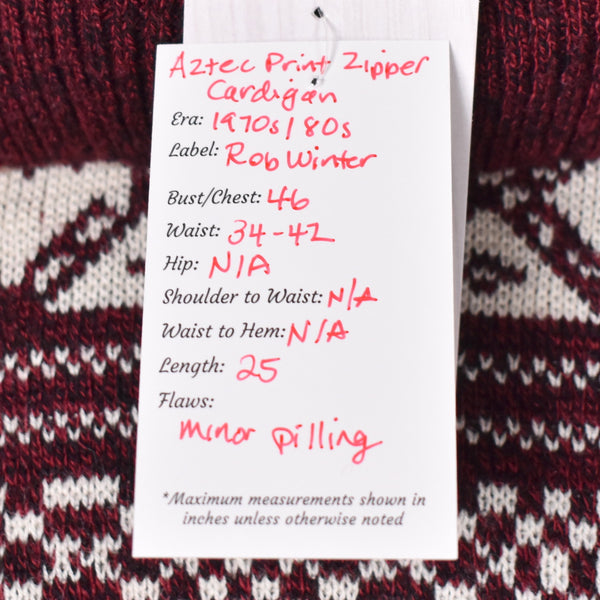 Aztec Print Zipper
Cardigan
Era: 1970s/80s
Label: Rob Winter
Bust/Chest: 46
Waist: 34-42
Hip: N/A
Shoulder to Waist: N/A
Waist to Hem: N/A
Length: 25
Flaws:
minor pilling
*Maximum measurements shown in
inches unless otherwise noted